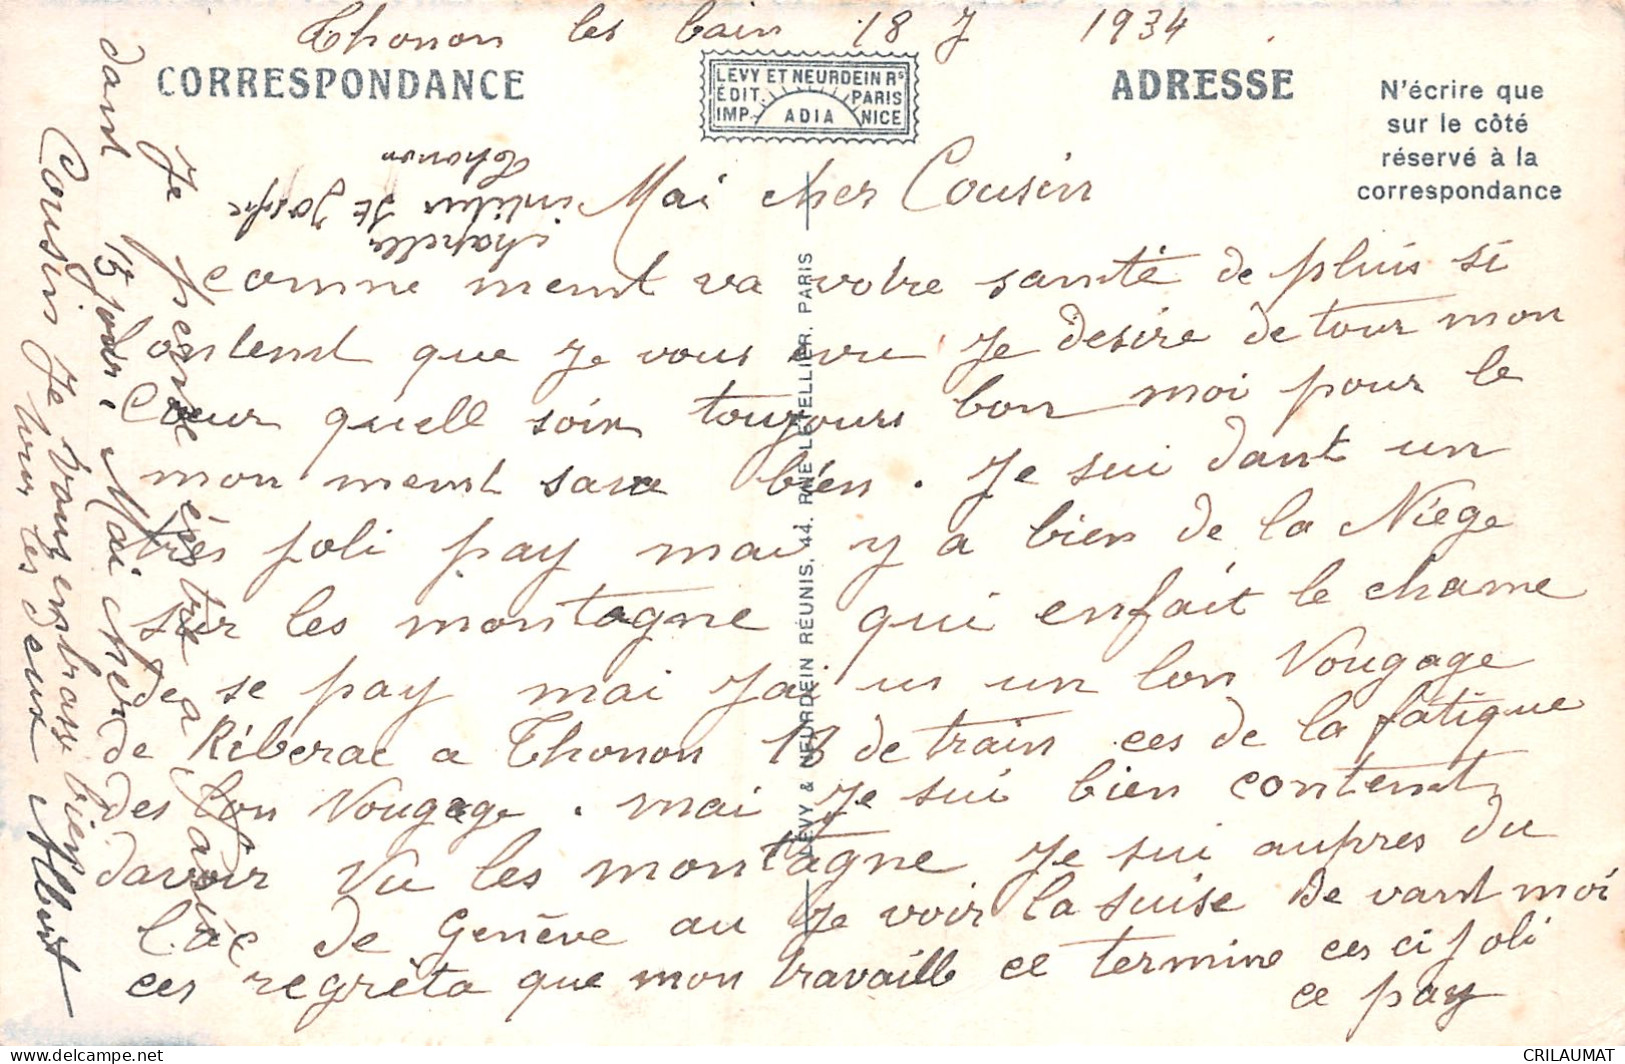 Thonon les bain 18 7 1934
CORRESPONDANCE
LEVY ET NEURDEIN Rs
ÉDIT. PARIS
IMP. ADIA NICE
ADRESSE
N'écrire que
sur le côté
réservé à la
correspondance
chapelle
St Joseph
Thonon
Mai cher Cousin
comme ment va votre santé de pluis si
lontent que Je vous vu Je desire de tour mon
Cœur quell soin toujours bon moi pour le
mon ment sava bien. Je sui dant un
très joli pay mai y a bien de la Niège
sur les montagne qui enfait le chame
de se pay mai Jai us un lon Vougage
de Riberac a Thonon 13 de train ces de la fatique
des lon Vougage. mai Je sui bien contemt
davoir Vu les montagne Je sui aupres du
lac de Genève au Je voir la suise de vant moi
ces regrèta que mon travaill ce termine ces ci joli
ce pay
Je pense éstre a
dant 15 jour Mai cher
Cousin Je vous embrasse bien
tous les deux Albert
LÉVY & NEURDEIN RÉUNIS, 44, RUE LETELLIER, PARIS
CRILAUMAT